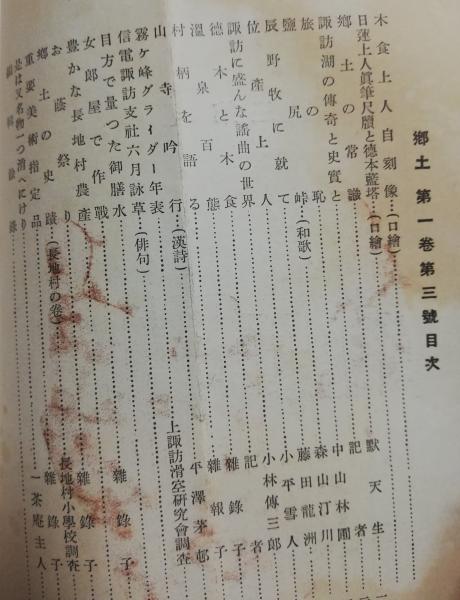 郷土 第一卷第三號目次
木食上人自刻像…(口繪)
日蓮上人眞筆尺牘と德本藍塔…(口繪)
郷土の常識 默天生
諏訪湖の傳奇と史實と 記者
旅の恥 中山林圃
鹽尻峠(和歌) 森山汀川
辰野牧に就て 藤田龍洲
位產上人 小平雪人
諏訪に盛んな謠曲の世界 小林傳三郎
德本と木食 記者
溫泉百態 雜錄子
村柄を語る 雜報子
山寺吟行(漢詩) 平澤茅邨
霧ケ峰グライダー年表 上諏訪滑空硏究會調査
信電諏訪支社六月詠草(俳句)
目方で量つた御膳水
女郎屋で作戰 雜錄子
豊かな長地村農產 長地村小學校調査
お蔭祭り 雜錄子
郷土の史蹟(長地村の卷) 雜錄子
重要美術指定品 一茶庵主人
是は又名物一つ消へにけり